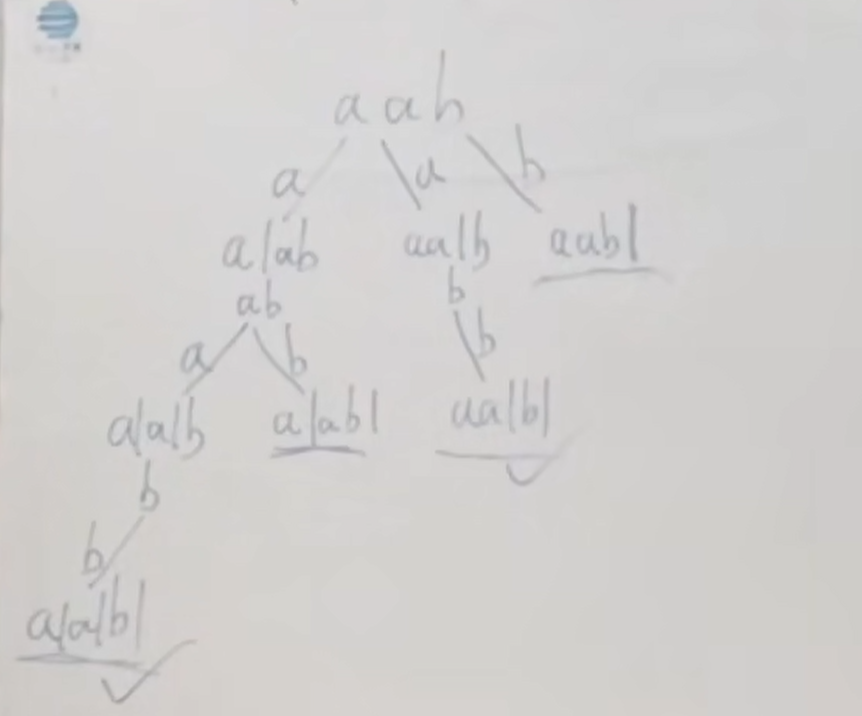 aab
a a b
a|ab aa|b aab|
ab b
a b b
a|a|b a|ab| aa|b|
b
b
a|a|b|